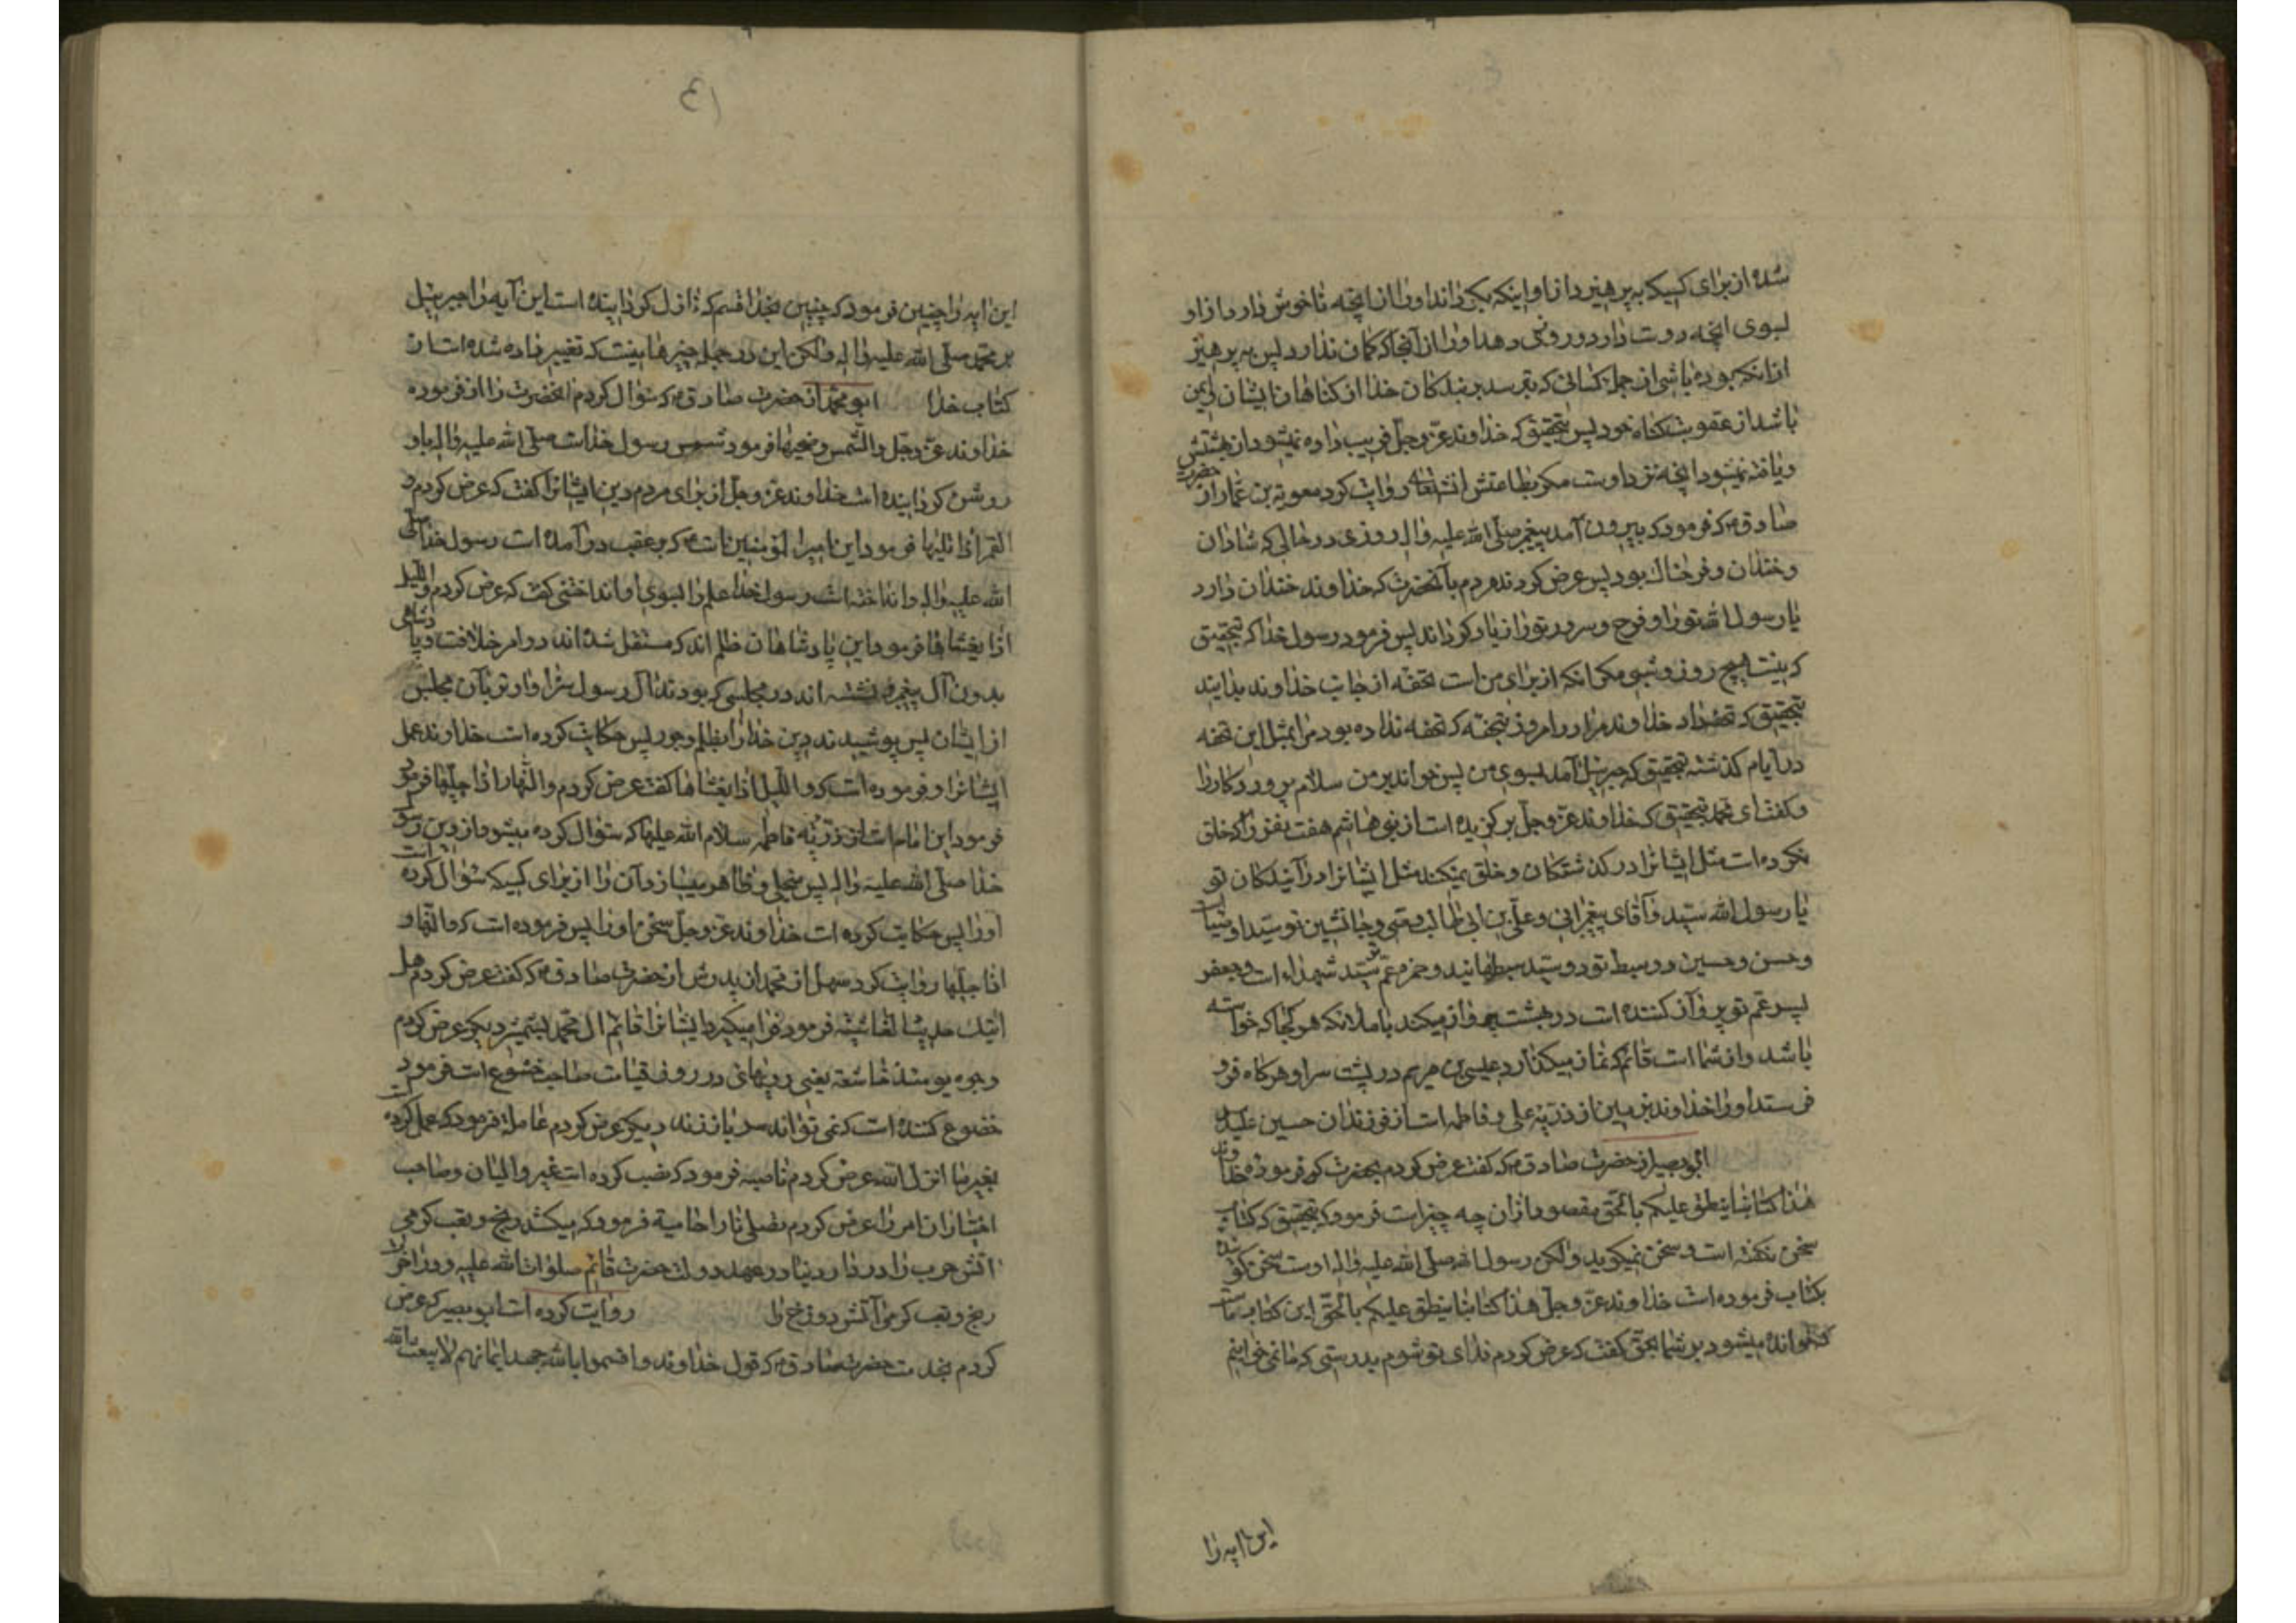 شده از برای کسیکه به پرهیزد از او اینکه بگرداند او را از انچه ناخوش دارد از او
بسوی انچه دوست دارد و روزی دهد او را از آنجا که کمان ندارد پس به پرهیز
از انکه بوده باشی از جمله کسانی که بترسد بر بندکان خدا از کناهان ایشان و ایمن
باشد از عقوبت کناه خود پس بتحقیق که خداوند عز و جل فریب داده نمیشود از بهشتش
و یافته نمیشود انچه نزد اوست مکر بطاعتش انشاءالله روایت کرد معویة بن عمار از حضرت
صادق ع که فرمود که بیرون آمد پیغمبر صلی الله علیه واله روزی در حالی که شادان
و خندان و فرحناک بود پس عرض کردند مردم بآنحضرت که خداوند خندان دارد
یا رسول الله تو را و فرح و سرور تو را زیاد کرداند پس فرمود رسول خدا که بتحقیق
که نیست هیچ روز و شبی مکر انکه از برای من است تحفه از جانب خداوند بدانید
بتحقیق که تحفه داد خداوند مرا در امروز بتحفه که تحفه نداده بود مرا بمثل این تحفه
در ایام کذشته بتحقیق که جبرئیل آمد بسوی من پس خواند بر من سلام پروردکار را
و کفت ای محمد بتحقیق که خداوند عز و جل برکزیده است از بنی هاشم هفت نفر را که خلق
نکرده است مثل ایشانرا در کذشتکان و خلق نمیکند مثل ایشانرا در آیندکان تو
یا رسول الله سید و آقای پیغمبرانی و علی بن ابی طالب وصی و جانشین تو سید اوصیا است
و حسن و حسین دو سبط تو دو سید سبطهایند و حمزه عم تو سید شهداء است و جعفر
پسر عم تو پرواز کننده است در بهشت پرواز میکند با ملائکه هر کجا که خواسته
باشد و از شما است قائم که نماز میکذارد عیسی بن مریم در پشت سر او هرکاه فرو
فرستد او را خداوند بزمین از ذریه علی و فاطمه است از فرزندان حسین علیه
ابوبصیر از حضرت صادق ع که کفت عرض کردم بحضرت که فرموده خداوند
هذا کتابنا ینطق علیکم بالحق مقصود از ان چه چیز است فرمود که بتحقیق که کتاب
سخن نکفته است و سخن نمیکوید ولکن رسول الله صلی الله علیه واله اوست سخن کوینده
بکتاب فرموده است خداوند عز و جل هذا کتابنا ینطق علیکم بالحق این کتاب ما است
که خوانده میشود بر شما بحق کفت که عرض کردم فدای تو شوم بدرستی که ما نمی خوانیم
این ایه را
این ایه را چنین فرمود که چنین بخدا قسم که نازل کردانیده است این آیه را جبرئیل
بر محمد صلی الله علیه واله ولکن این در جمله چیزهائیست که تغییر داده شده است از
کتاب خدا ابو محمد از حضرت صادق ع که سؤال کردم انحضرت را از فرموده
خداوند عز و جل والشمس وضحیها فرمود شمس رسول خدا است صلی الله علیه واله باو
روشن کردانیده است خداوند عز و جل از برای مردم دین ایشانرا کفت که عرض کردم و
القمر اذا تلیها فرمود این امیرالمؤمنین است ع که بر عقب در آمده است رسول خدا صلی
الله علیه واله و انداخته است رسول خدا علم را بسوی او انداختنی کفت که عرض کردم واللیل
اذا یغشاها فرمود این پادشاهان ظلم اند که مستقل شده اند در امر خلافت و پادشاهی
بدون آل پیغمبر و نشسته اند در مجلسی که بودند آل رسول سزاوارتر بآن مجلس
از ایشان پس پوشیدند دین خدا را بظلم و جور پس حکایت کرده است خداوند عمل
ایشانرا و فرموده است که واللیل اذا یغشاها کفت عرض کردم والنهار اذا جلیها فرمود
فرمود این امام است از ذریه فاطمه سلام الله علیها که سئوال کرده میشود از دین رسول
خدا صلی الله علیه واله پس منجلی و ظاهر میسازد آن را از برای کسیکه سئوال کرده است
او را پس حکایت کرده است خداوند عز و جل سخن او را پس فرموده است که والنهار
اذا جلیها روایت کرد سهل از محمد از پدرش از حضرت صادق ع که کفت عرض کردم هل
اتیک حدیث الغاشیة فرمود فرا میکیرد ایشانرا قائم ال محمد بشمشیر دیکر عرض کردم
وجوه یومئذ خاشعة یعنی رویهائی در روز قیامت صاحب خشوع است فرمود
خضوع کننده است که نمی تواند سر باز زند دیکر عرض کردم عاملة فرمود که عمل کرده است
بغیر ما انزل الله عرض کردم ناصبه فرمود که نصب کرده است غیر والیان و صاحب
اختیاران امر را عرض کردم تصلی نارا حامیة فرمود که میکشد رنج و تعب کرمی
اتش حرب را در دار دنیا در عهد دولت حضرت قائم صلوات الله علیه و در اخرة
رنج و تعب کرمی آتش دوزخ را روایت کرده است ابو بصیر که عرض
کردم بخدمت حضرت صادق ع که قول خداوند و اقسموا بالله جهد ایمانهم لا یبعث الله